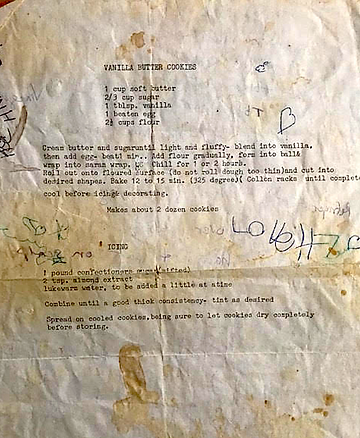 VANILLA BUTTER COOKIES
1 cup soft butter
2/3 cup sugar
1 tblsp. vanilla
1 beaten egg
2½ cups flour
Cream butter and sugaruntil light and fluffy- blend into vanilla,
then add egg- beat1 min.. Add flour gradually, form into ball&
wrap into saran wrap. Chill for 1 or 2 hours.
Roll out onto floured surface (do not roll dough too thin)and cut into
desired shapes. Bake 12 to 15 min. (325 degree)( Coolen racks until complete
cool before icing& decorating.
Makes about 2 dozen cookies
ICING
1 pound confectioners sugar(sifted)
2 tsp. almond extract
lukewarm water, to be added a little at atime
Combine until a good thick consistency- tint as desired
Spread on cooled cookies,being sure to let cookies dry completely
before storing.